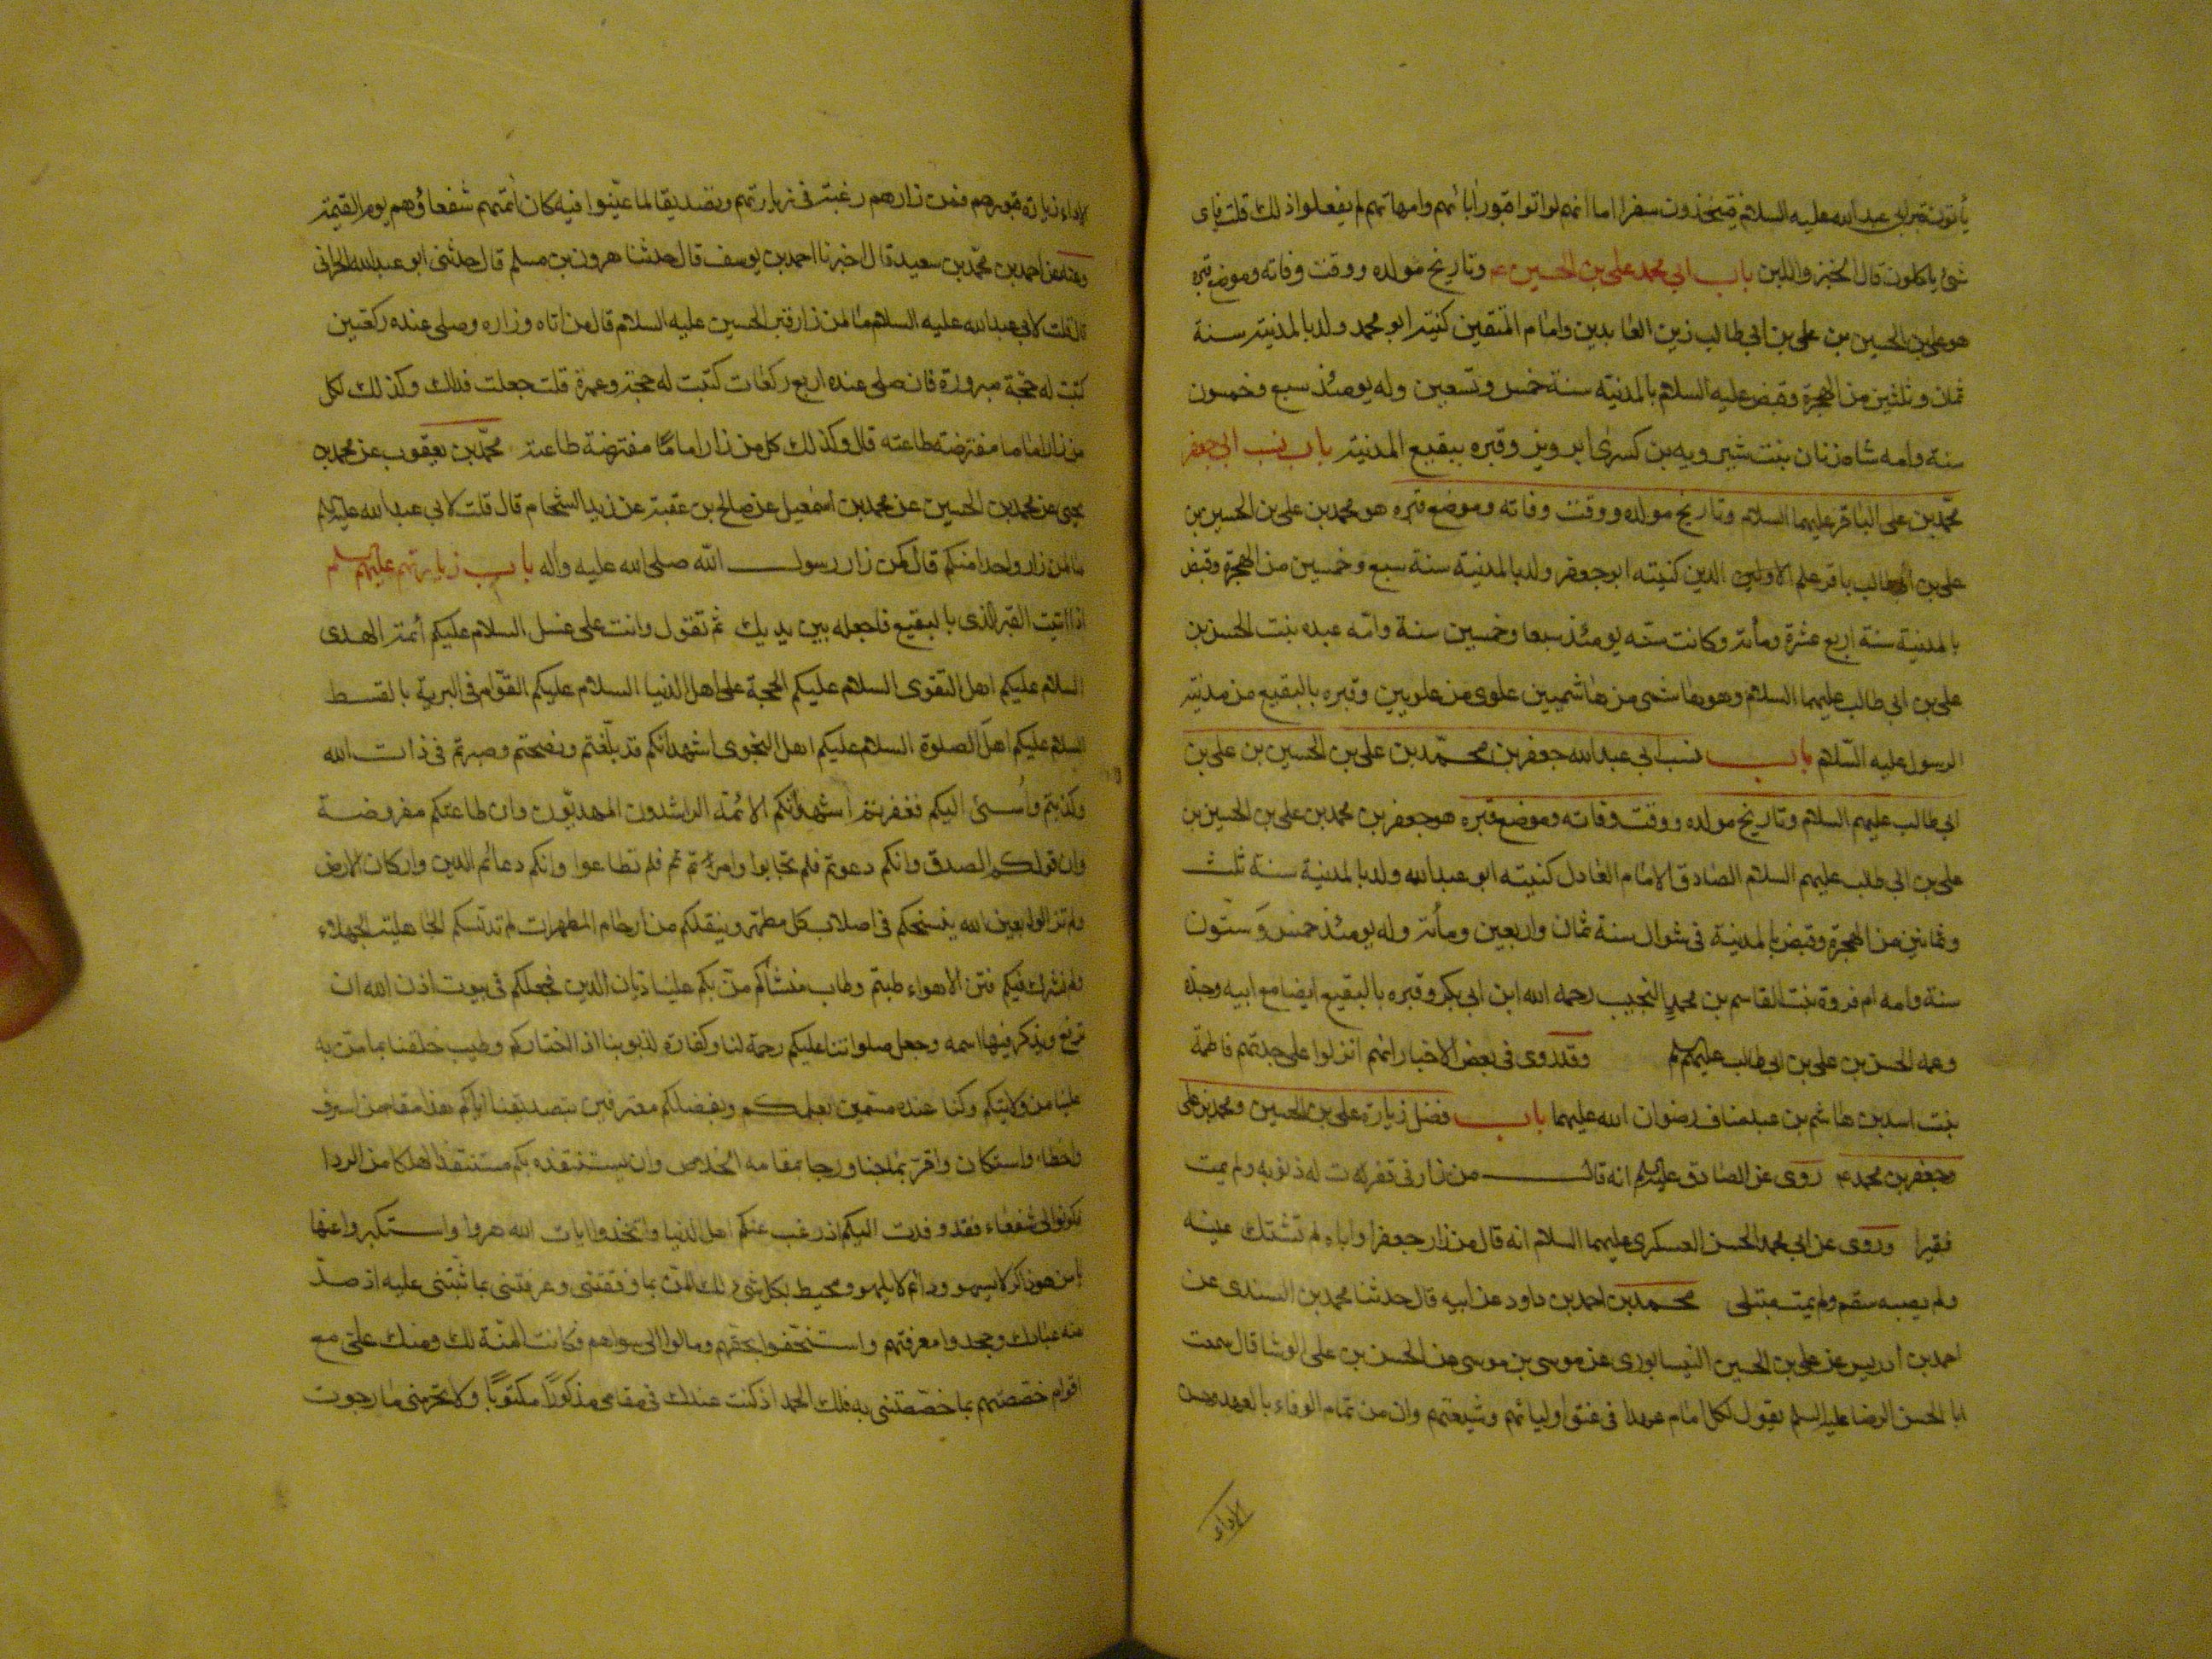 يأتون قبر ابي عبد الله عليه السلام فيتخذون سفرا اما انهم لو اتوا قبور ابائهم وامهاتهم لم يفعلوا ذلك قلت فباى
شئ ياكلون قال الخبز واللبن باب ابي محمد على بن الحسين ع وتاريخ مولده ووقت وفاته وموضع قبره
هو على بن الحسين بن على بن ابي طالب زين العابدين وامام المتقين كنيته ابو محمد ولد بالمدنية سنة
ثمان وثلثين من الهجرة وقبض عليه السلام بالمدنية سنة خمس وتسعين وله يومئذ سبع وخمسون
سنة وامه شاه زنان بنت شيرويه بن كسرى ابرويز وقبره ببقيع المدنية باب نسب ابي جعفر
محمد بن على الباقر عليهما السلام وتاريخ مولده ووقت وفاته وموضع قبره هو محمد بن على بن الحسين بن
على بن ابي طالب باقر علم الاولين الدين كنيته ابو جعفر ولد بالمدنية سنة سبع وخمسين من الهجرة وقبض
بالمدنية سنة اربع عشرة ومأته وكانت سنه يومئذ سبعا وخمسين سنة وامه عبده بنت الحسن بن
على بن ابي طالب عليهما السلام وهو هاشمى من هاشميين علوى من علويين وقبره بالبقيع من مدنية
الرسول عليه السلام باب نسب ابي عبد الله جعفر بن محمد بن على بن الحسين بن على بن
ابي طالب عليهم السلام وتاريخ مولده ووقت وفاته وموضع قبره هو جعفر بن محمد بن على بن الحسين بن
على بن ابي طالب عليهم السلام الصادق الامام العادل كنيته ابو عبد الله ولد بالمدنية سنة ثلث
وثمانين من الهجرة وقبض بالمدنية فى شوال سنة ثمان واربعين ومأته وله يومئذ خمس وستون
سنة وامه ام فروة بنت القاسم بن محمد النجيب رحمه الله ابن ابي بكر وقبره بالبقيع ايضا مع ابيه وجده
وعمه الحسن بن على بن ابي طالب عليهم وقد روى فى بعض الاخبار انهم انزلوا على جدتهم فاطمة
بنت اسد بن هاشم بن عبد مناف رضوان الله عليهما باب فضل زيارة على بن الحسين ومحمد بن على
وجعفر بن محمد ع روى عن الصادق عليه انه قال من زارنى غفرت له ذنوبه ولم يمت
فقيرا وروى عن ابي محمد الحسن العسكرى عليهما السلام انه قال من زار جعفرا واباه لم تشتك عينه
ولم يصبه سقم ولم يمت مبتلى محمد بن احمد بن داود عن ابيه قال حدثنا محمد بن السندى عن
احمد بن ادريس عن على بن الحسين النيسابورى عن موسى بن موسى عن الحسن بن على الوشا قال سمعت
ابا الحسن الرضا عليه السلم يقول لكل امام عهدا فى عنق اوليائهم وشيعتهم وان من تمام الوفاء بالعهد وحسن
الاداء
الاداء زيارة قبورهم فمن زارهم رغبة فى زيارتهم وتصديقا لما عينوا فيه كان ائمتهم شفعاؤهم يوم القيمة
وعنه عن احمد بن محمد بن سعيد قال اخبرنا احمد بن يوسف قال حدثنا هرون بن مسلم قال حدثنى ابو عبد الله الحرانى
قال قلت لابي عبد الله عليه السلام ما لمن زار قبر الحسين عليه السلام قال من اتاه وزاره وصلى عنده ركعتين
كتبت له حجة مبرورة فان صلى عنده اربع ركعات كتبت له حجة وعمرة قلت جعلت فداك وكذلك لكل
من زار اماما مفترضة طاعته قال وكذلك كل من زار اماما مفترضة طاعته محمد بن يعقوب عن محمد بن
يحيى عن محمد بن الحسين عن محمد بن اسمعيل عن صالح بن عقبة عن زيد الشحام قال قلت لابي عبد الله عليه
ما لمن زار واحدا منكم قال كمن زار رسول الله صلى الله عليه واله باب زيارتهم عليهم
اذا اتيت القبر الذى بالبقيع فاجعله بين يديك ثم تقول وانت على غسل السلام عليكم أئمة الهدى
السلام عليكم اهل التقوى السلام عليكم الحجة على اهل الدنيا السلام عليكم القوام فى البرية بالقسط
السلام عليكم اهل الصلوة السلام عليكم اهل النجوى اشهد انكم قد بلغتم ونصحتم وصبرتم فى ذات الله
وكذبتم واسئ اليكم فغفرتم اشهد انكم الائمة الراشدون المهديون وان طاعتكم مفروضة
وان قولكم الصدق وانكم دعوتم فلم تجابوا وامرتم فلم تطاعوا وانكم دعائم الدين واركان الارض
ولم تزالوا بعين الله ينسخكم فى اصلاب كل مطهر وينقلكم من ارحام المطهرات لم تدنسكم الجاهلية الجهلاء
ولم تشرك فيكم فتن الاهواء طبتم وطاب منشأكم من بكم علينا ديان الدين فجعلكم فى بيوت اذن الله ان
ترفع ويذكر فيها اسمه وجعل صلواتنا عليكم رحمة لنا وكفارة لذنوبنا اذ اختاركم وطيب خلقنا بما من به
علينا من ولايتكم وكنا عنده مسمين بعلمكم وبفضلكم معترفين بتصديقنا اياكم هذا مقام من اسرف
واخطاء واستكان واقر بما جنا ورجا بمقامه الخلاص وان يستنقذه بكم مستنقذ الهلكا من الردا
فكونوا لى شفعاء فقد وفدت اليكم اذ رغب عنكم اهل الدنيا واتخذوا ايات الله هزوا واستكبروا عنها
يا من هو ذاكر لا يسهو ودائم لا يلهو ومحيط بكل شئ لك المن بما وفقتنى وعرفتنى بما ثبتنى عليه اذ صد
عنه عبادك وجحدوا معرفتهم واستخفوا بحقهم ومالوا الى سواهم فكانت المنة لك ومنك على مع
اقوام خصصتهم بما خصصتنى به فلك الحمد اذ كنت عندك فى مقامى مذكورا مكتوبا ولا تحرمنى ما رجوت